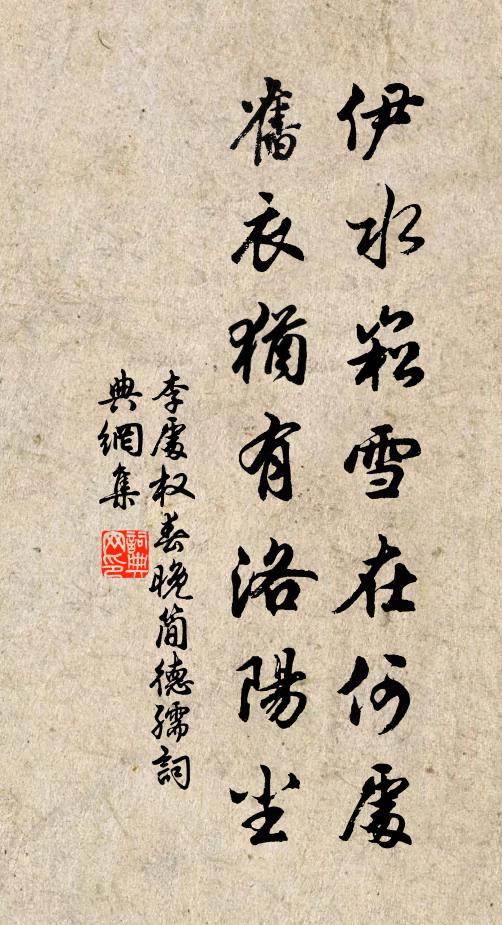 伊水崧雪在何處
舊衣猶有洛陽尘
李處权春晚简德孺詞
典網集
詞典
网印